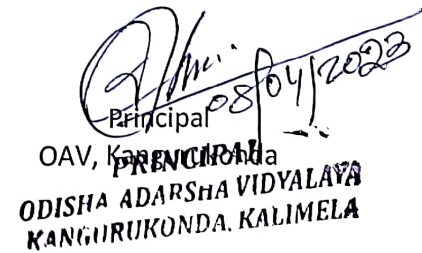 08/04/2023
Principal
OAV, Kangurukonda
PRINCIPAL
ODISHA ADARSHA VIDYALAYA
KANGURUKONDA, KALIMELA